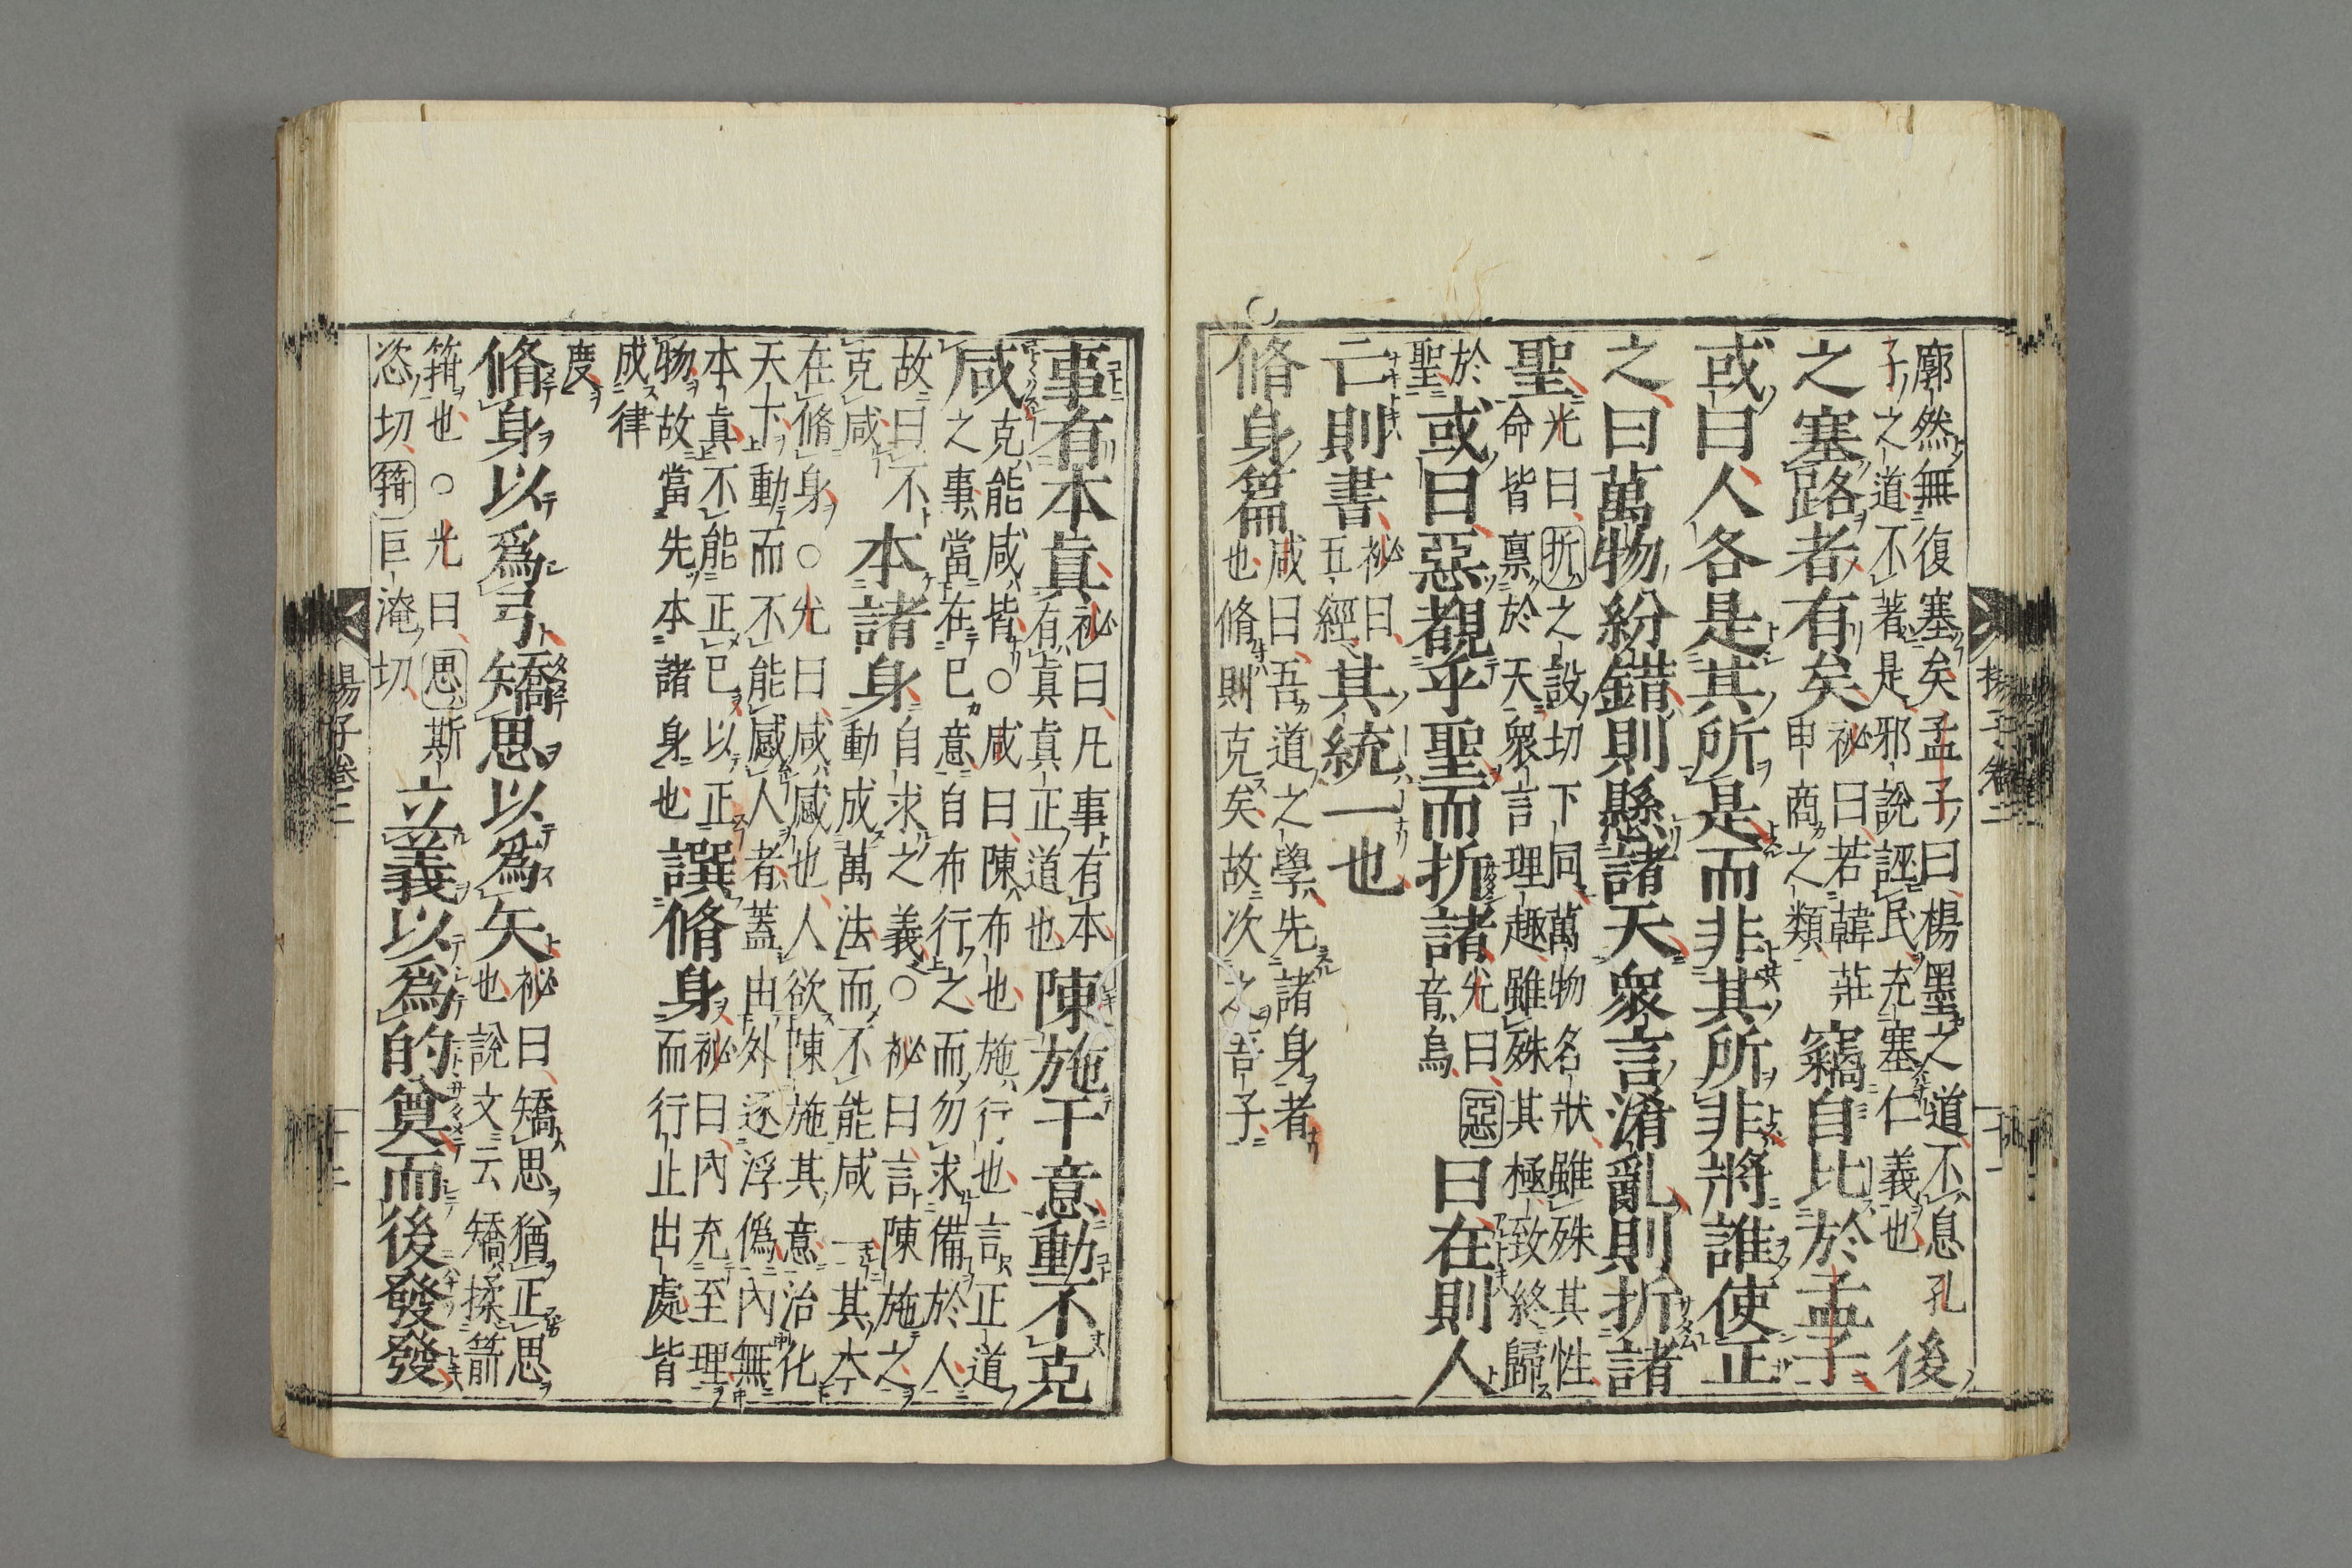 廓然無復塞矣孟子曰楊墨之道不息孔
子之道不著是邪說誣民充塞仁義也
後
之塞路者有矣
祕曰若韓莊
申商之類
竊自比於孟子
或曰人各是其所是而非其所非將誰使正
之曰萬物紛錯則懸諸天衆言淆亂則折諸
聖
光曰折之設切下同萬物名狀雖殊其性
命皆稟於天衆言理趣雖殊其極致終歸
於
聖
或曰惡覩乎聖而折諸
光曰惡
音烏
曰在則人
亡則書
祕曰
五經
其統一也
○脩身篇
咸曰吾道之學先諸身者
也脩則克矣故次之吾子
事有本真
祕曰凡事有本
有真真正道也
陳施于意動不克
咸
克能咸皆○咸曰陳布也施行也言正道
之事當在已意自布行之而勿求備於人
故曰不
克咸
本諸身
自求之義○祕曰言陳施之
動成萬法而不能咸一其本
在脩身○光曰咸感也人欲陳施其意治化
天下動而不能感人者蓋由外逐浮僞內無
本真不能正已以正
物故當先本諸身也
譔脩身
祕曰內充至理
而行止出處皆
成律
度
脩身以爲弓矯思以爲矢
祕曰矯思猶正思
也說文云矯揉箭
箝也○光曰思斯
恣切箝巨淹切
立義以爲的奠而後發發
楊子卷二
十一
楊子卷二
十二